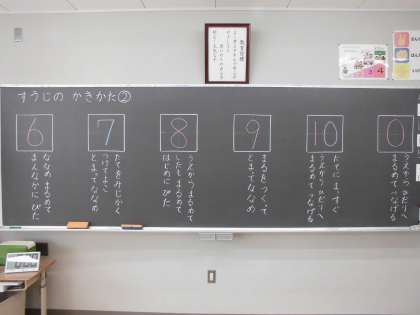 すうじの かきかた②
6
ななめ まるめて
まんなかに ぴた
7
たてを みじかく
つけてよこ
とまってななめ
8
うえから まるめて
したも まるめて
はじめに ぴた
9
まるを つくって
とまて ななめ
10
たてに まっすぐ
うえから ひだりへ
まるめて つなげる
0
うえから ひだりへ
まるめて つなげる